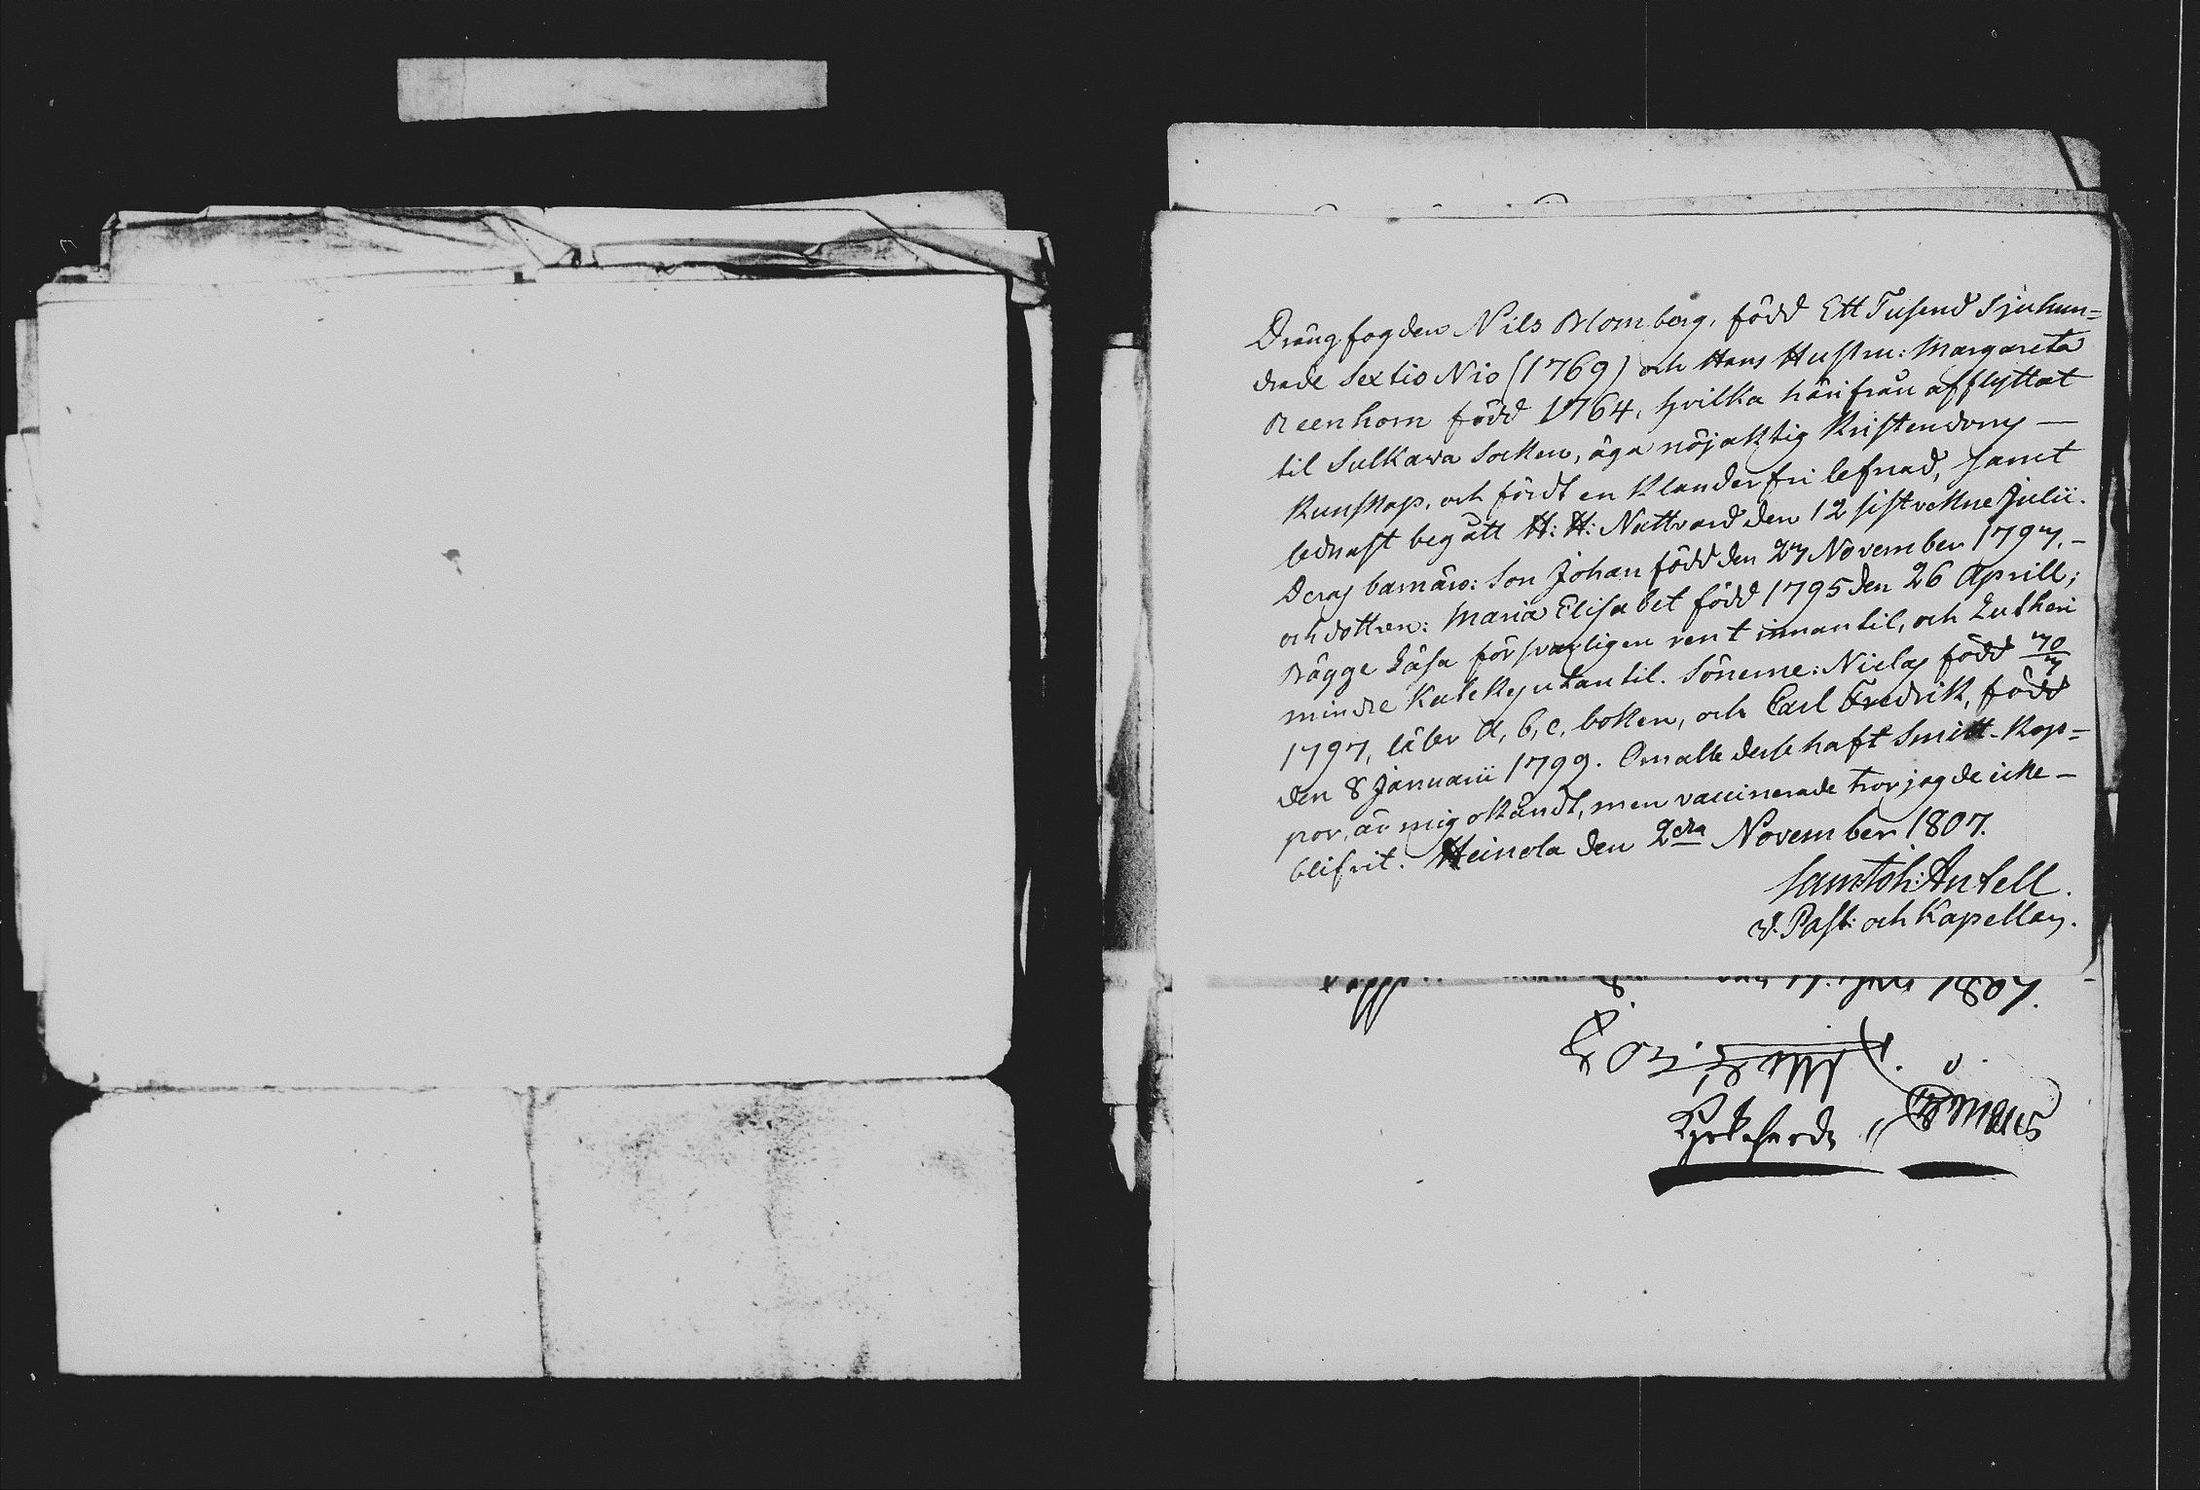 Drängfogden Nils Blomberg, född Ett Tusend Sjuhun=
drade Sextio Nio (1769) och Hans Hustru: Margareta
Reenhorn född 1764, hvilka härifrån afflyttat
til Sulkawa Socken, äga nöjaktig Kristendoms —
Kunskap, och fördt en Klanderfri lefnad, samt
lednast begått H: H: Nattvard den 12 sistvekne Julii.
Deras barn äro: Son Johan född den 27 November 1797. –
och dottren: Maria Elisabet född 1795 den 26 Aprill;
Bägge Läsa försvarligen rent innantil, och Lutheri
mindre Katekes utantil. Sönerne: Niclas född 70/7
1797, läser A, b, c, boken, och Carl Fredrik, född
den 8 Januarii 1799. Om alle desse haft Smitt-Kop=
por, är mig okändt, men vaccinerade tror jag de icke –
blifvit. Heinola den 2dra November 1807.
Antell.
v. Past: och Kapellan.
1807.
Kyrkoherde